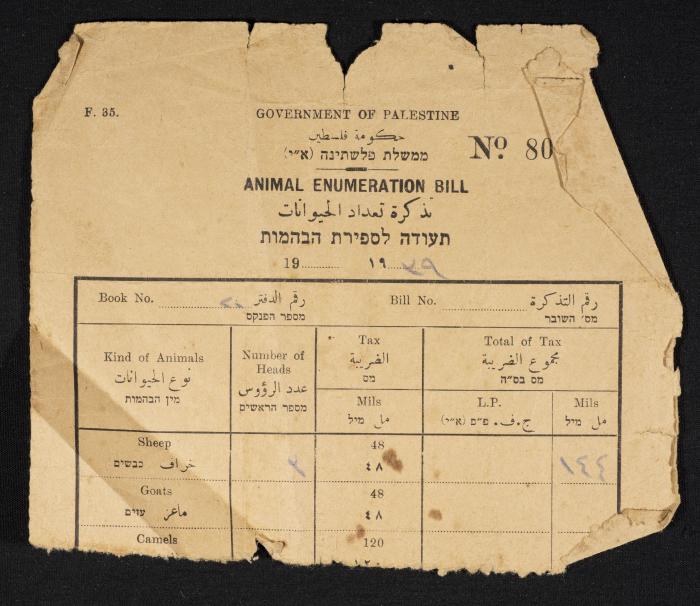 F. 35.
GOVERNMENT OF PALESTINE
حكومة فلسطين
ממשלת פלשתינה (א״י)
No. 80
ANIMAL ENUMERATION BILL
تذكرة تعداد الحيوانات
תעודה לספירת הבהמות
19 ١٩
Book No. رقم الدفتر
מספר הפנקס
Bill No. رقم التذكرة
מס׳ השובר
Kind of Animals
نوع الحيوانات
מין הבהמות
Number of
Heads
عدد الرؤوس
מספר הראשים
Tax
الضريبة
מס
Mils
مل מיל
Total of Tax
مجموع الضريبة
מס בס״ה
L.P.
ج.ف. פ״פ (א״י)
Mils
مل מיל
Sheep
خراف כבשים
48
٤٨
١٤٤
Goats
ماعز עזים
48
٤٨
Camels
120